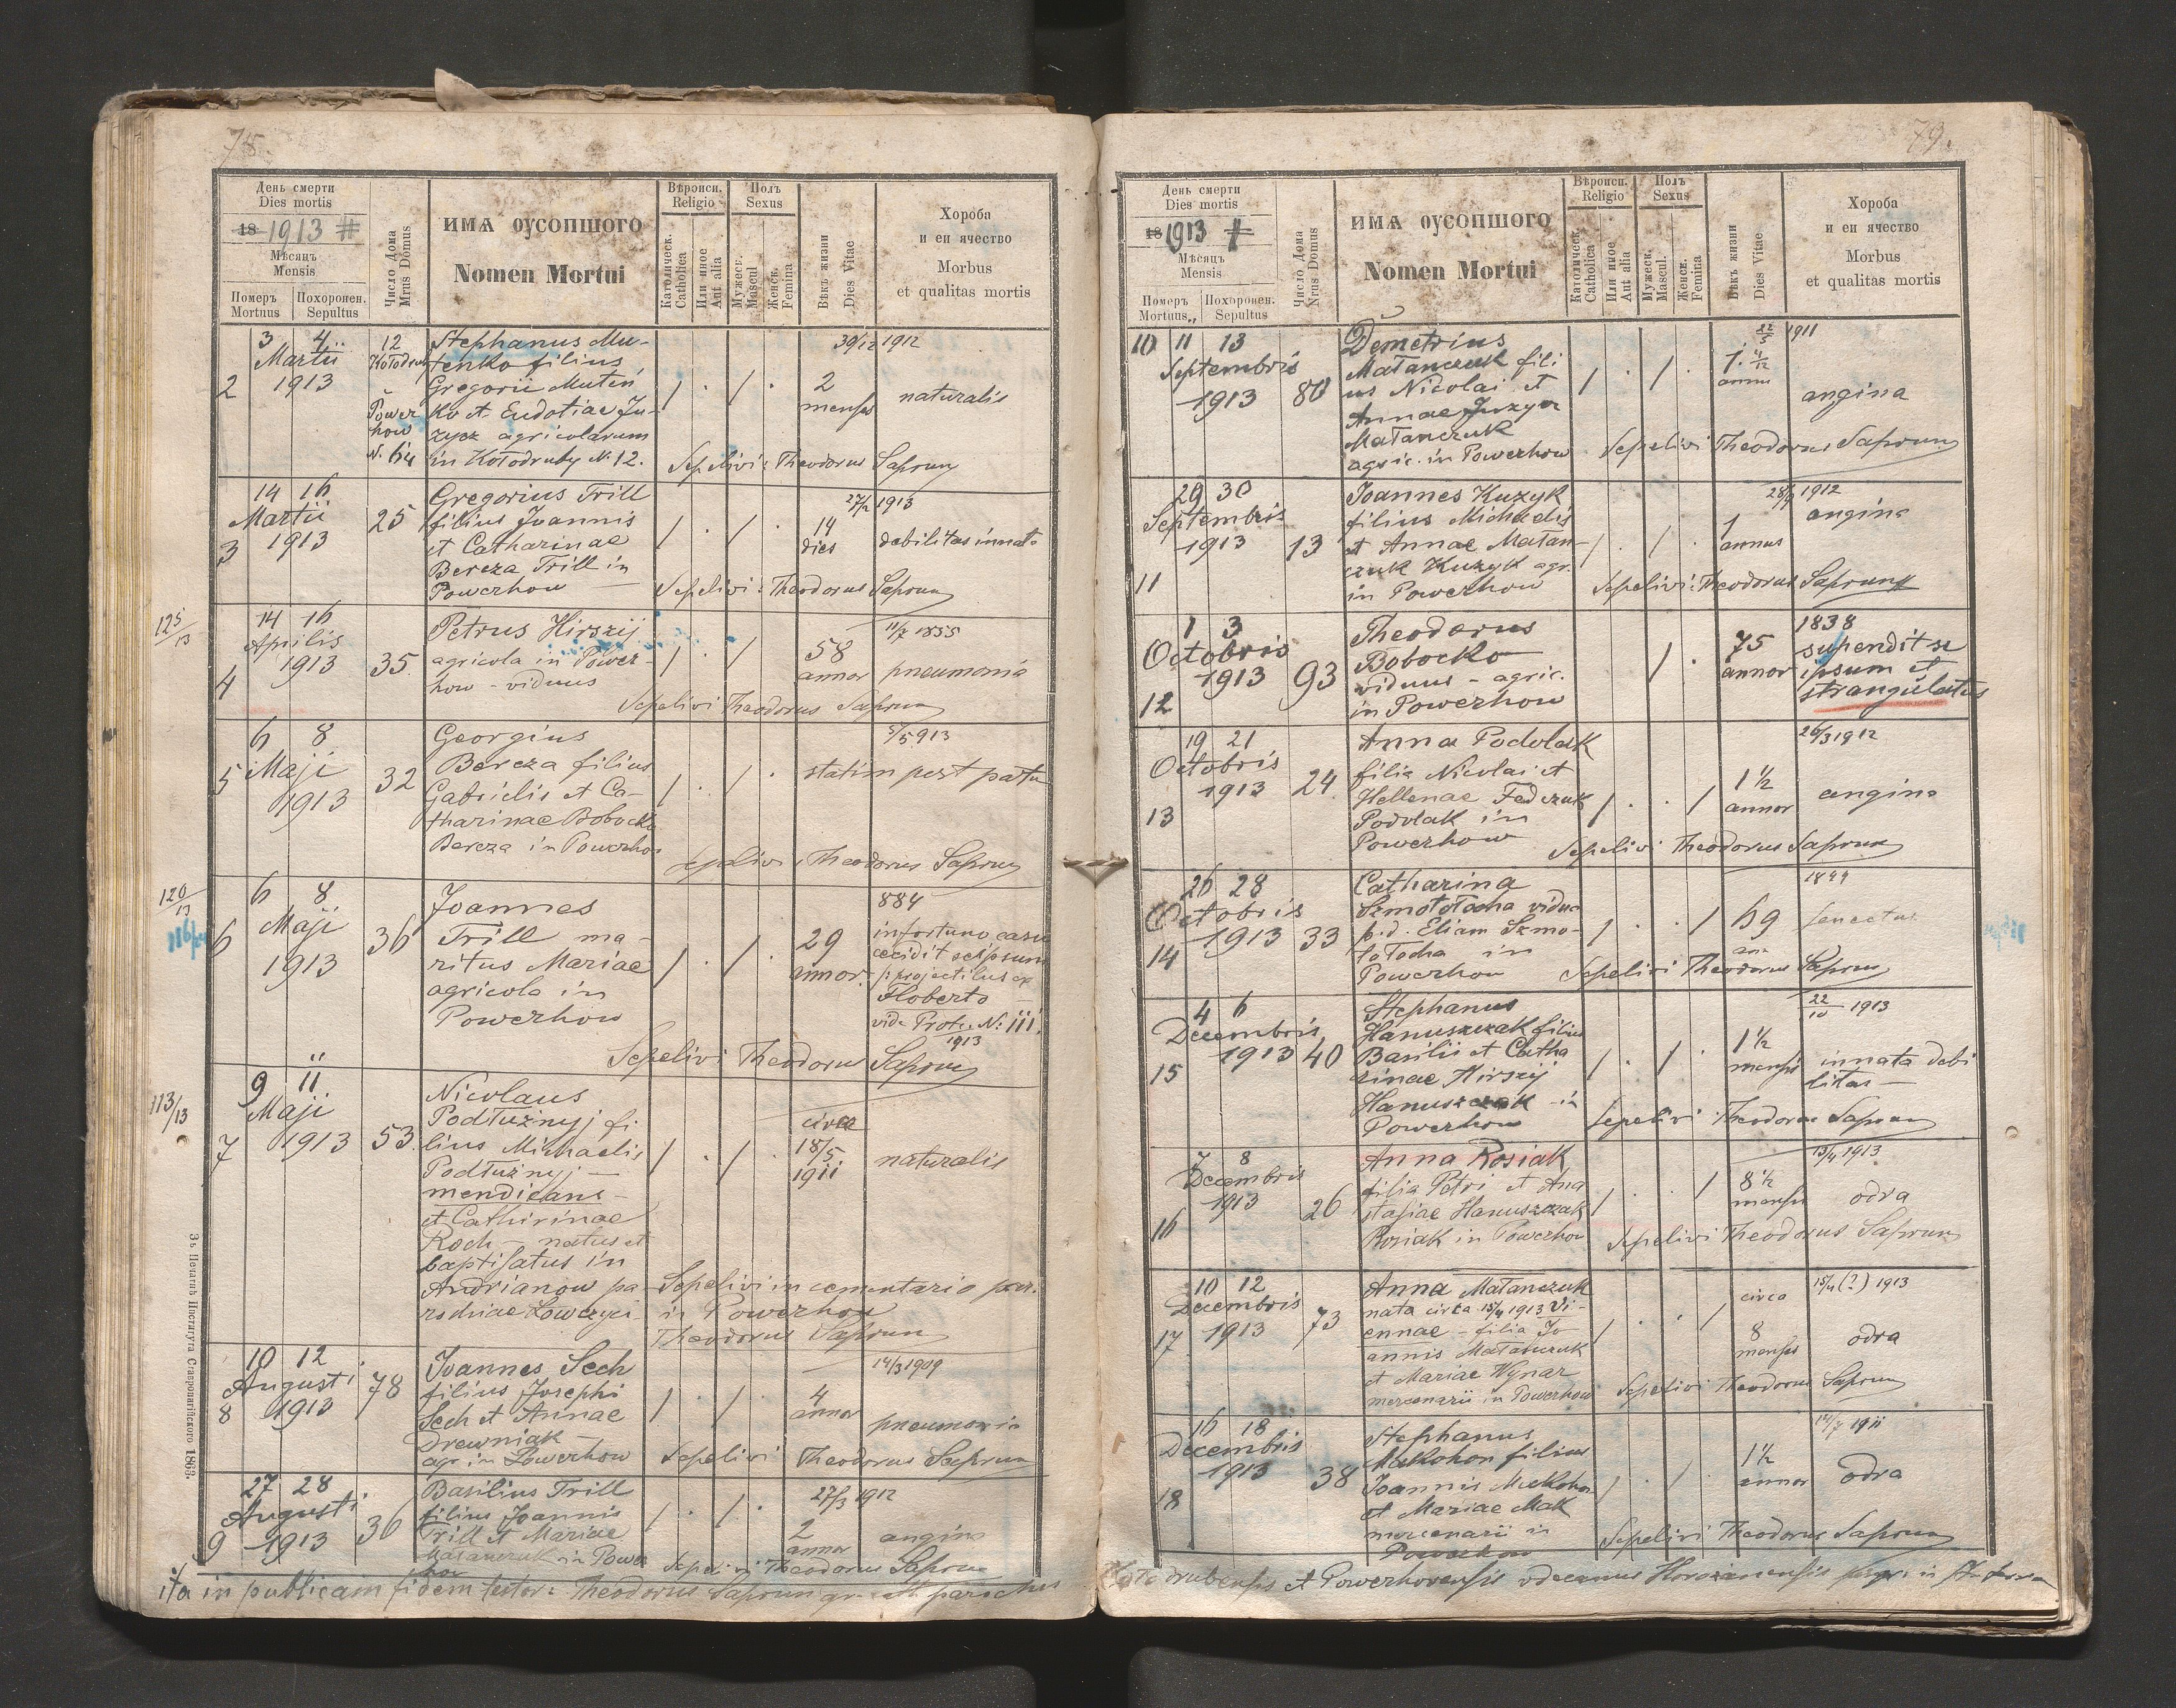 78
День смерти
Dies mortis
18 1913 #
Мѣсяцъ
Mensis
Померъ
Mortuus
Похоронен.
Sepultus
Число Дома
Nrus Domus
ИМѦ ОУСОПШОГО
Nomen Mortui
Вѣроиси.
Religio
Католическ.
Catholica
Или иное
Aut alia
Полъ
Sexus
Мужеск.
Mascul
Женск.
Femina
Вѣкъ жизни
Dies Vitae
Хороба
и еи ячество
Morbus
et qualitas mortis
2
3 4
Martii
1913
12
Kołodruby
Power
how
N. 64
Stephanus Mu-
tenko filius
Gregorii Muten
ko et Eudotiae Ju-
zycz agricolarum
in Kołodruby N. 12.
30/12 1912
2
menses
naturalis
Sepelivi: Theodorus Saprun
3
14 16
Martii
1913
25
Gregorius Trill
filius Joannis
et Catharinae
Bereza Trill in
Powerhow
27/2 1913
14
dies
debilitas innata
Sepelivi: Theodorus Saprun
125/13
4
14 16
Aprilis
1913
35
Petrus Hirszij
agricola in Power-
how - viduus
11/7 1855
58
annor
pneumonia
Sepelivi Theodorus Saprun
5
6 8
Maji
1913
32
Georgius
Bereza filius
Gabrielis et Ca-
tharinae Bobocko
Bereza in Powerhow
5/5 913
statim post partu
Sepelivi Theodorus Saprun
120/13
6
6 8
Maji
1913
36
Joannes
Trill ma-
ritus Mariae
agricola in
Powerhow
884
29
annor.
infortuno casu
cecidit seipsum
projectilus ex
Floberto
vide Prot. N: 111.
1913
Sepelivi Theodorus Saprun
113/13
7
9 11
Maji
1913
53.
Nicolaus
Podłużnyj fi-
lius Michaelis
Podłużnyj -
mendicans -
et Cathirinae
Roch - natus et
baptisatus in
Andrianow pa-
rochiae Łowczyci
circa
18/5
1911
naturalis
Sepelivi in cementario par.
in Powerhow
Theodorus Saprun
8
10 12
Augusti
1913
78
Joannes Sech
filius Josephi
Sech et Annae
Drewniak -
agr in Powerhow
14/3 1909
4
annor
pneumonia
Sepelivi Theodorus Saprun
9
27 28
Augusti
1913
36
Basilius Trill
filius Joannis
Trill et Mariae
Matanczuk in Power
how
27/3 1912
2
annor
angina
Sepelivi Theodorus Saprun
ita in publicam fidem testor: Theodorus Saprun gr. cath. parochus
Зъ Печатнѣ Института Ставропигійского 1863.
79.
День смерти
Dies mortis
18 1913 #
Мѣсяцъ
Mensis
Померъ
Mortuus
Похоронен.
Sepultus
Число Дома
Nrus Domus
ИМѦ ОУСОПШОГО
Nomen Mortui
Вѣроиси.
Religio
Католическ.
Catholica
Или иное
Aut alia
Полъ
Sexus
Мужеск.
Mascul.
Женск.
Femina
Вѣкъ жизни
Dies Vitae
Хороба
и еи ячество
Morbus
et qualitas mortis
10
11 13
Septembris
1913
80
Demetrius
Matanczuk fili
us Nicolai et
Annae Juzycz
Matanczuk
agric. in Powerhow
1911
annus
angina
Sepelivi Theodorus Saprun
11
29 30
Septembris
1913
13
Joannes Kuzyk
filius Michaelis
et Annae Matan-
czuk Kuzyk agr.
in Powerhow
28/9 1912
1
annus
angina
Sepelivi: Theodorus Saprun
12
1 3
Octobris
1913
93
Theodorus
Bobocko
viduus - agric.
in Powerhow
75
annor
1838
supendit se
ipsum et
strangulatus
13
19 21
Octobris
1913
24
Anna Podolak
filia Nicolai et
Hellenae Fedczuk
Podolak in
Powerhow
26/3 1912
1 1/2
annor
angina
Sepelivi Theodorus Saprun
14
26 28
Octobris
1913
33
Catharina
Szmotołocha vidua
p.d. Eliam Szmo-
tołocha in
Powerhow
1844
69
ann
senectus
Sepelivi Theodorus Saprun
15
4 6
Decembris
1913
40
Stephanus
Hanuszczak filius
Basilii et Catha
rinae Hirszij
Hanuszczak - in
Powerhow
22/10 1913
1 1/2
mensis
innata debi
litas -
Sepelivi Theodorus Saprun
16
7 8
Decembris
1913
26
Anna Rosiak
filia Petri et Ana
stasiae Hanuszczak
Rosiak in Powerhow
13/4 1913
8 1/2
mensis
odra
Sepelivi Theodorus Saprun
17
10 12
Decembris
1913
73
Anna Matanczuk
nata circa 15/4 1913 Vi-
ennae - filia Jo
annis Matanczuk
et Mariae Wynar
mercenarii in Powerhow
circa
15/4 (?) 1913
8
menses
odra
Sepelivi Theodorus Saprun
18
16 18
Decembris
1913
38
Stephanus
Makohon filius
Joannis Makohon
et Mariae Mak
mercenarii in
Powerhow
14/7 1911
1 1/2
annor
odra
Sepelivi Theodorus Saprun
Kołodrubensis et Powerhovensis vdecanus Horożanensis